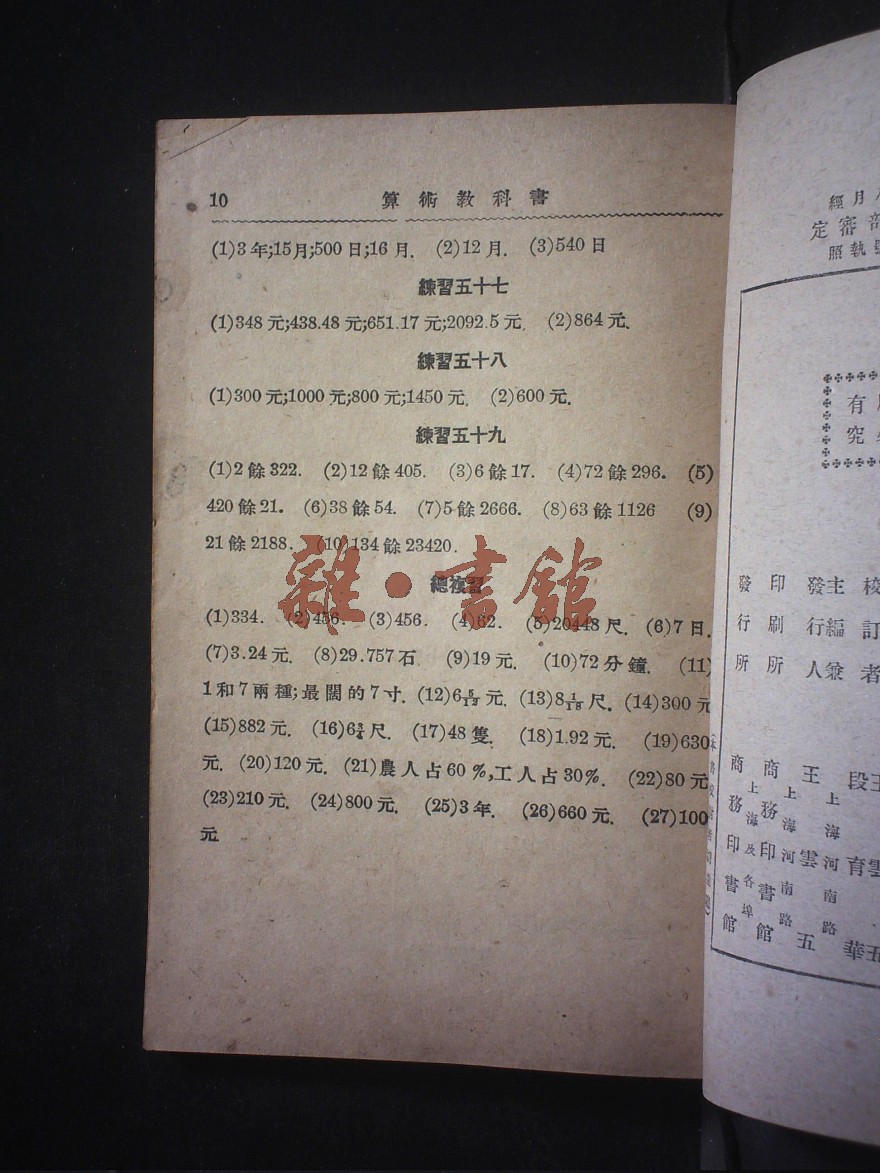 10 算術教科書
(1)3年;15月;500日;16月. (2)12月. (3)540日
練習五十七
(1)348元;438.48元;651.17元;2092.5元. (2)864元.
練習五十八
(1)300元;1000元;800元;1450元. (2)600元.
練習五十九
(1)2餘322. (2)12餘405. (3)6餘17. (4)72餘296. (5)
420餘21. (6)38餘54. (7)5餘2666. (8)63餘1126 (9)
21餘2188. (10)134餘23420.
總複習
(1)334. (2)456. (3)456. (4)62. (5)20448尺. (6)7日.
(7)3.24元. (8)29.757石. (9)19元. (10)72分鐘. (11)
1和7兩種;最闊的7寸. (12)6元. (13)8尺. (14)300元
(15)882元. (16)6¾尺. (17)48隻. (18)1.92元. (19)630
元. (20)120元. (21)農人占60%,工人占30%. (22)80元
(23)210元. (24)800元. (25)3年. (26)660元. (27)100
元
雜·書館
月經
審定
執照
有
究
校訂者
主編兼發行人
印刷所
發行所
王雲五
上海河南路
商務印書館
上海河南路
商務印書館
上海及各埠
段育華